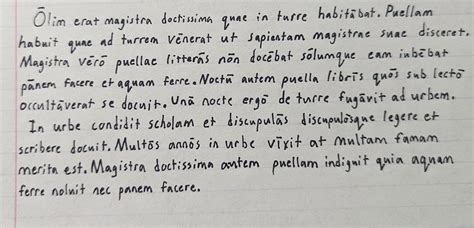 Ōlim erat magistra doctissima quae in turre habitābat. Puellam
habuit quae ad turrem vēnerat ut sapientam magistrae suae disceret.
Magistra vērō puellae litterās nōn docēbat sōlumque eam iubēbat
pānem facere et aquam ferre. Noctū autem puella librīs quōs sub lectō
occultāverat se docuit. Ūnā nocte ergō de turre fugāvit ad urbem.
In urbe condidit scholam et discupulās discupulōsque legere et
scribere docuit. Multōs annōs in urbe vīxit at multam famam
merita est. Magistra doctissima autem puellam indignit quia aquam
ferre noluit nec panem facere.